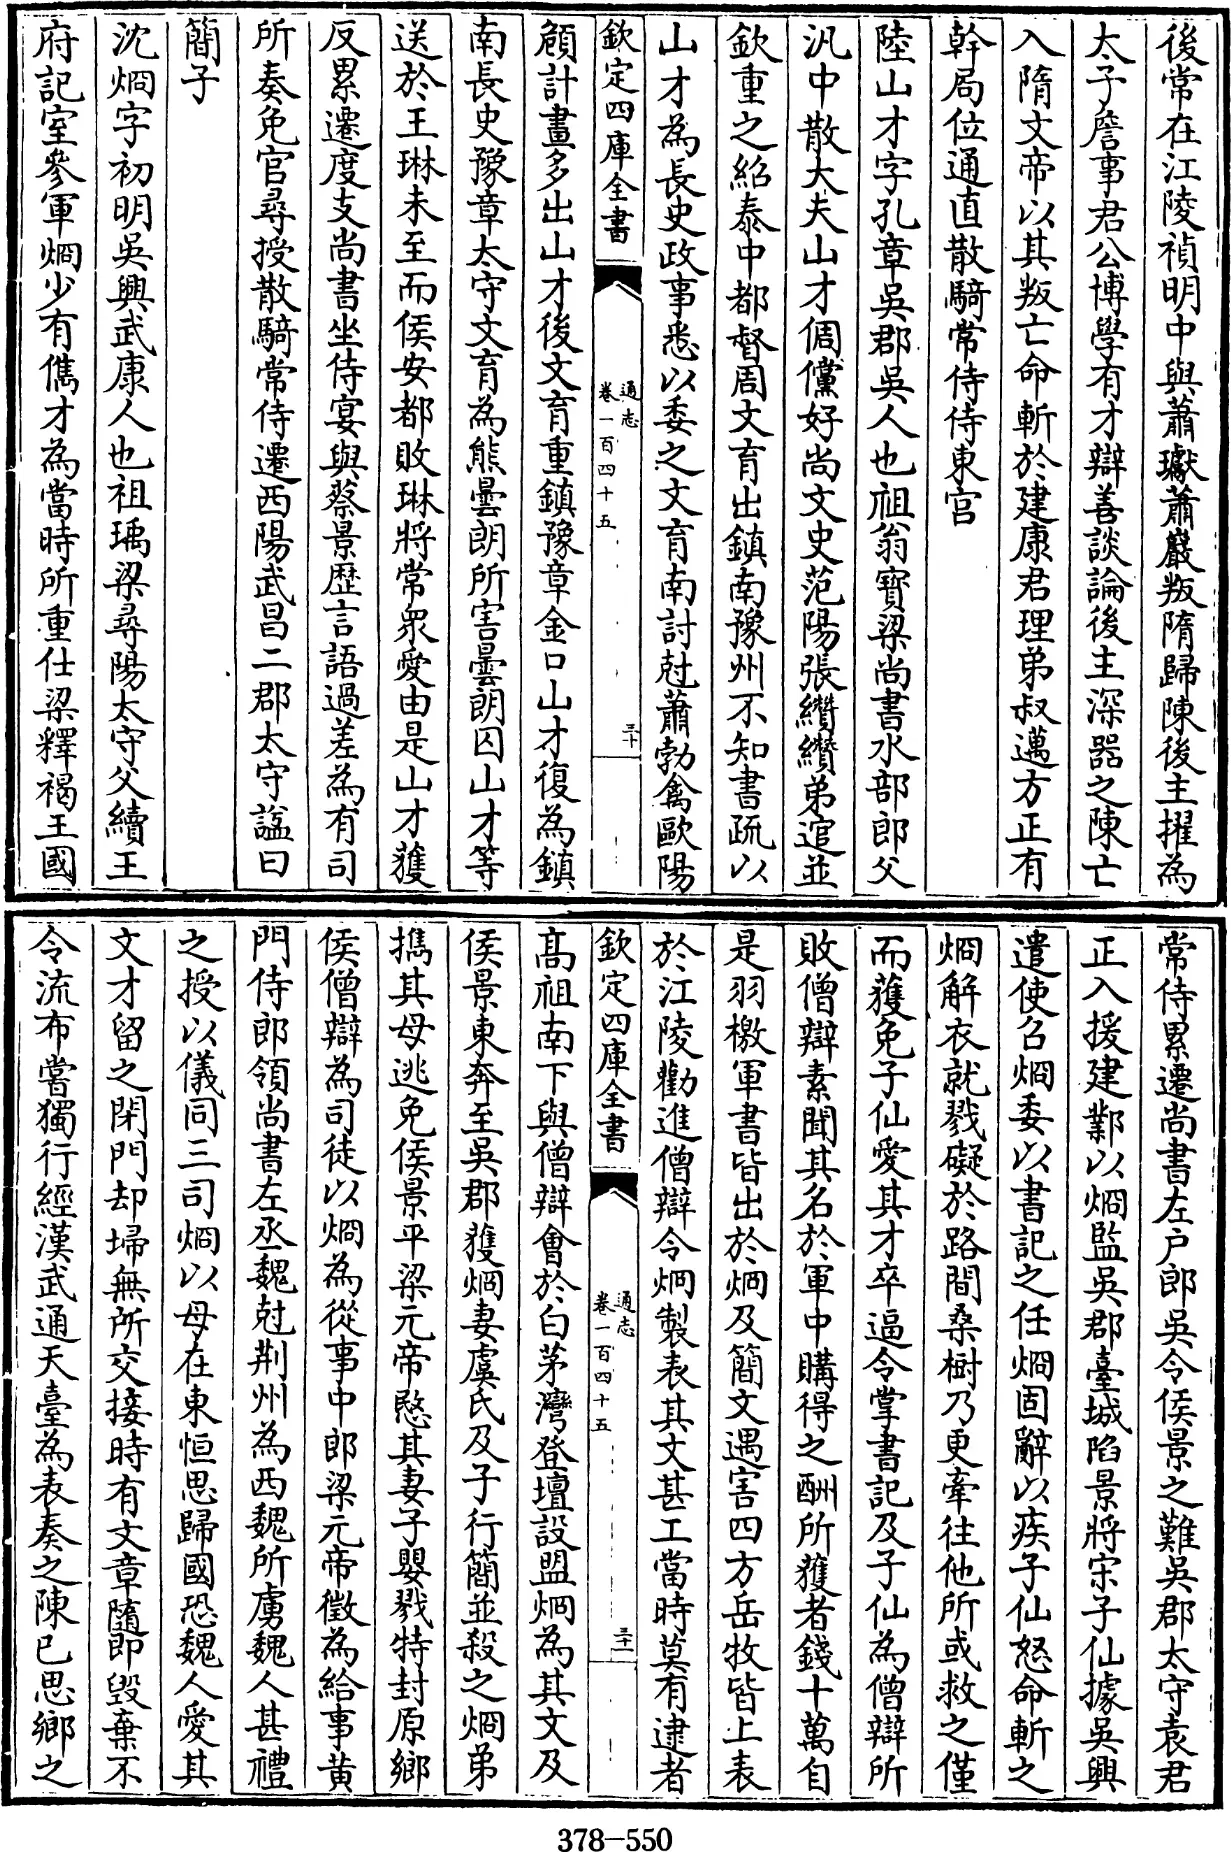 後常在江陵禎明中與蕭瓛蕭巖叛隋歸陳後主擢為
太子詹事君公博學有才辯善談論後主深器之陳亡
入隋文帝以其叛亡命斬於建康君理弟叔邁方正有
幹局位通直散騎常侍侍東宫
陸山才字孔章吳郡吳人也祖翁寶梁尚書水部郎父
汎中散大夫山才倜儻好尚文史范陽張纘纘弟綰並
欽重之紹泰中都督周文育出鎮南豫州不知書疏以
山才為長史政事悉以委之文育南討尅蕭勃禽歐陽
欽定四庫全書
通志
卷一百四十五
三十
頠計畫多出山才後文育重鎮豫章金口山才復為鎮
南長史豫章太守文育為熊曇朗所害曇朗囚山才等
送於王琳未至而侯安都敗琳將常衆愛由是山才獲
反累遷度支尚書坐侍宴與蔡景歴言語過差為有司
所奏免官尋授散騎常侍遷西陽武昌二郡太守諡曰
簡子
沈烱字初明吳興武康人也祖瑀梁尋陽太守父續王
府記室參軍烱少有儁才為當時所重仕梁釋褐王國
常侍累遷尚書左户郎吳令侯景之難吳郡太守袁君
正入援建鄴以烱監吳郡臺城陷景將宋子仙據吳興
遣使召烱委以書記之任烱固辭以疾子仙怒命斬之
烱解衣就戮礙於路間桑樹乃更牽往他所或救之僅
而獲免子仙愛其才卒逼令掌書記及子仙為僧辯所
敗僧辯素聞其名於軍中購得之酬所獲者錢十萬自
是羽檄軍書皆出於烱及簡文遇害四方岳牧皆上表
於江陵勸進僧辯令烱製表其文甚工當時莫有逮者
欽定四庫全書
通志
卷一百四十五
三十一
髙祖南下與僧辯會於白茅灣登壇設盟烱為其文及
侯景東奔至吳郡獲烱妻虞氏及子行簡並殺之烱弟
攜其母逃免侯景平梁元帝愍其妻子嬰戮特封原鄉
侯僧辯為司徒以烱為從事中郎梁元帝徵為給事黄
門侍郎領尚書左丞魏尅荆州為西魏所虜魏人甚禮
之授以儀同三司烱以母在東恒思歸國恐魏人愛其
文才留之閉門却埽無所交接時有文章隨即毁棄不
令流布嘗獨行經漢武通天臺為表奏之陳已思鄉之
378-550